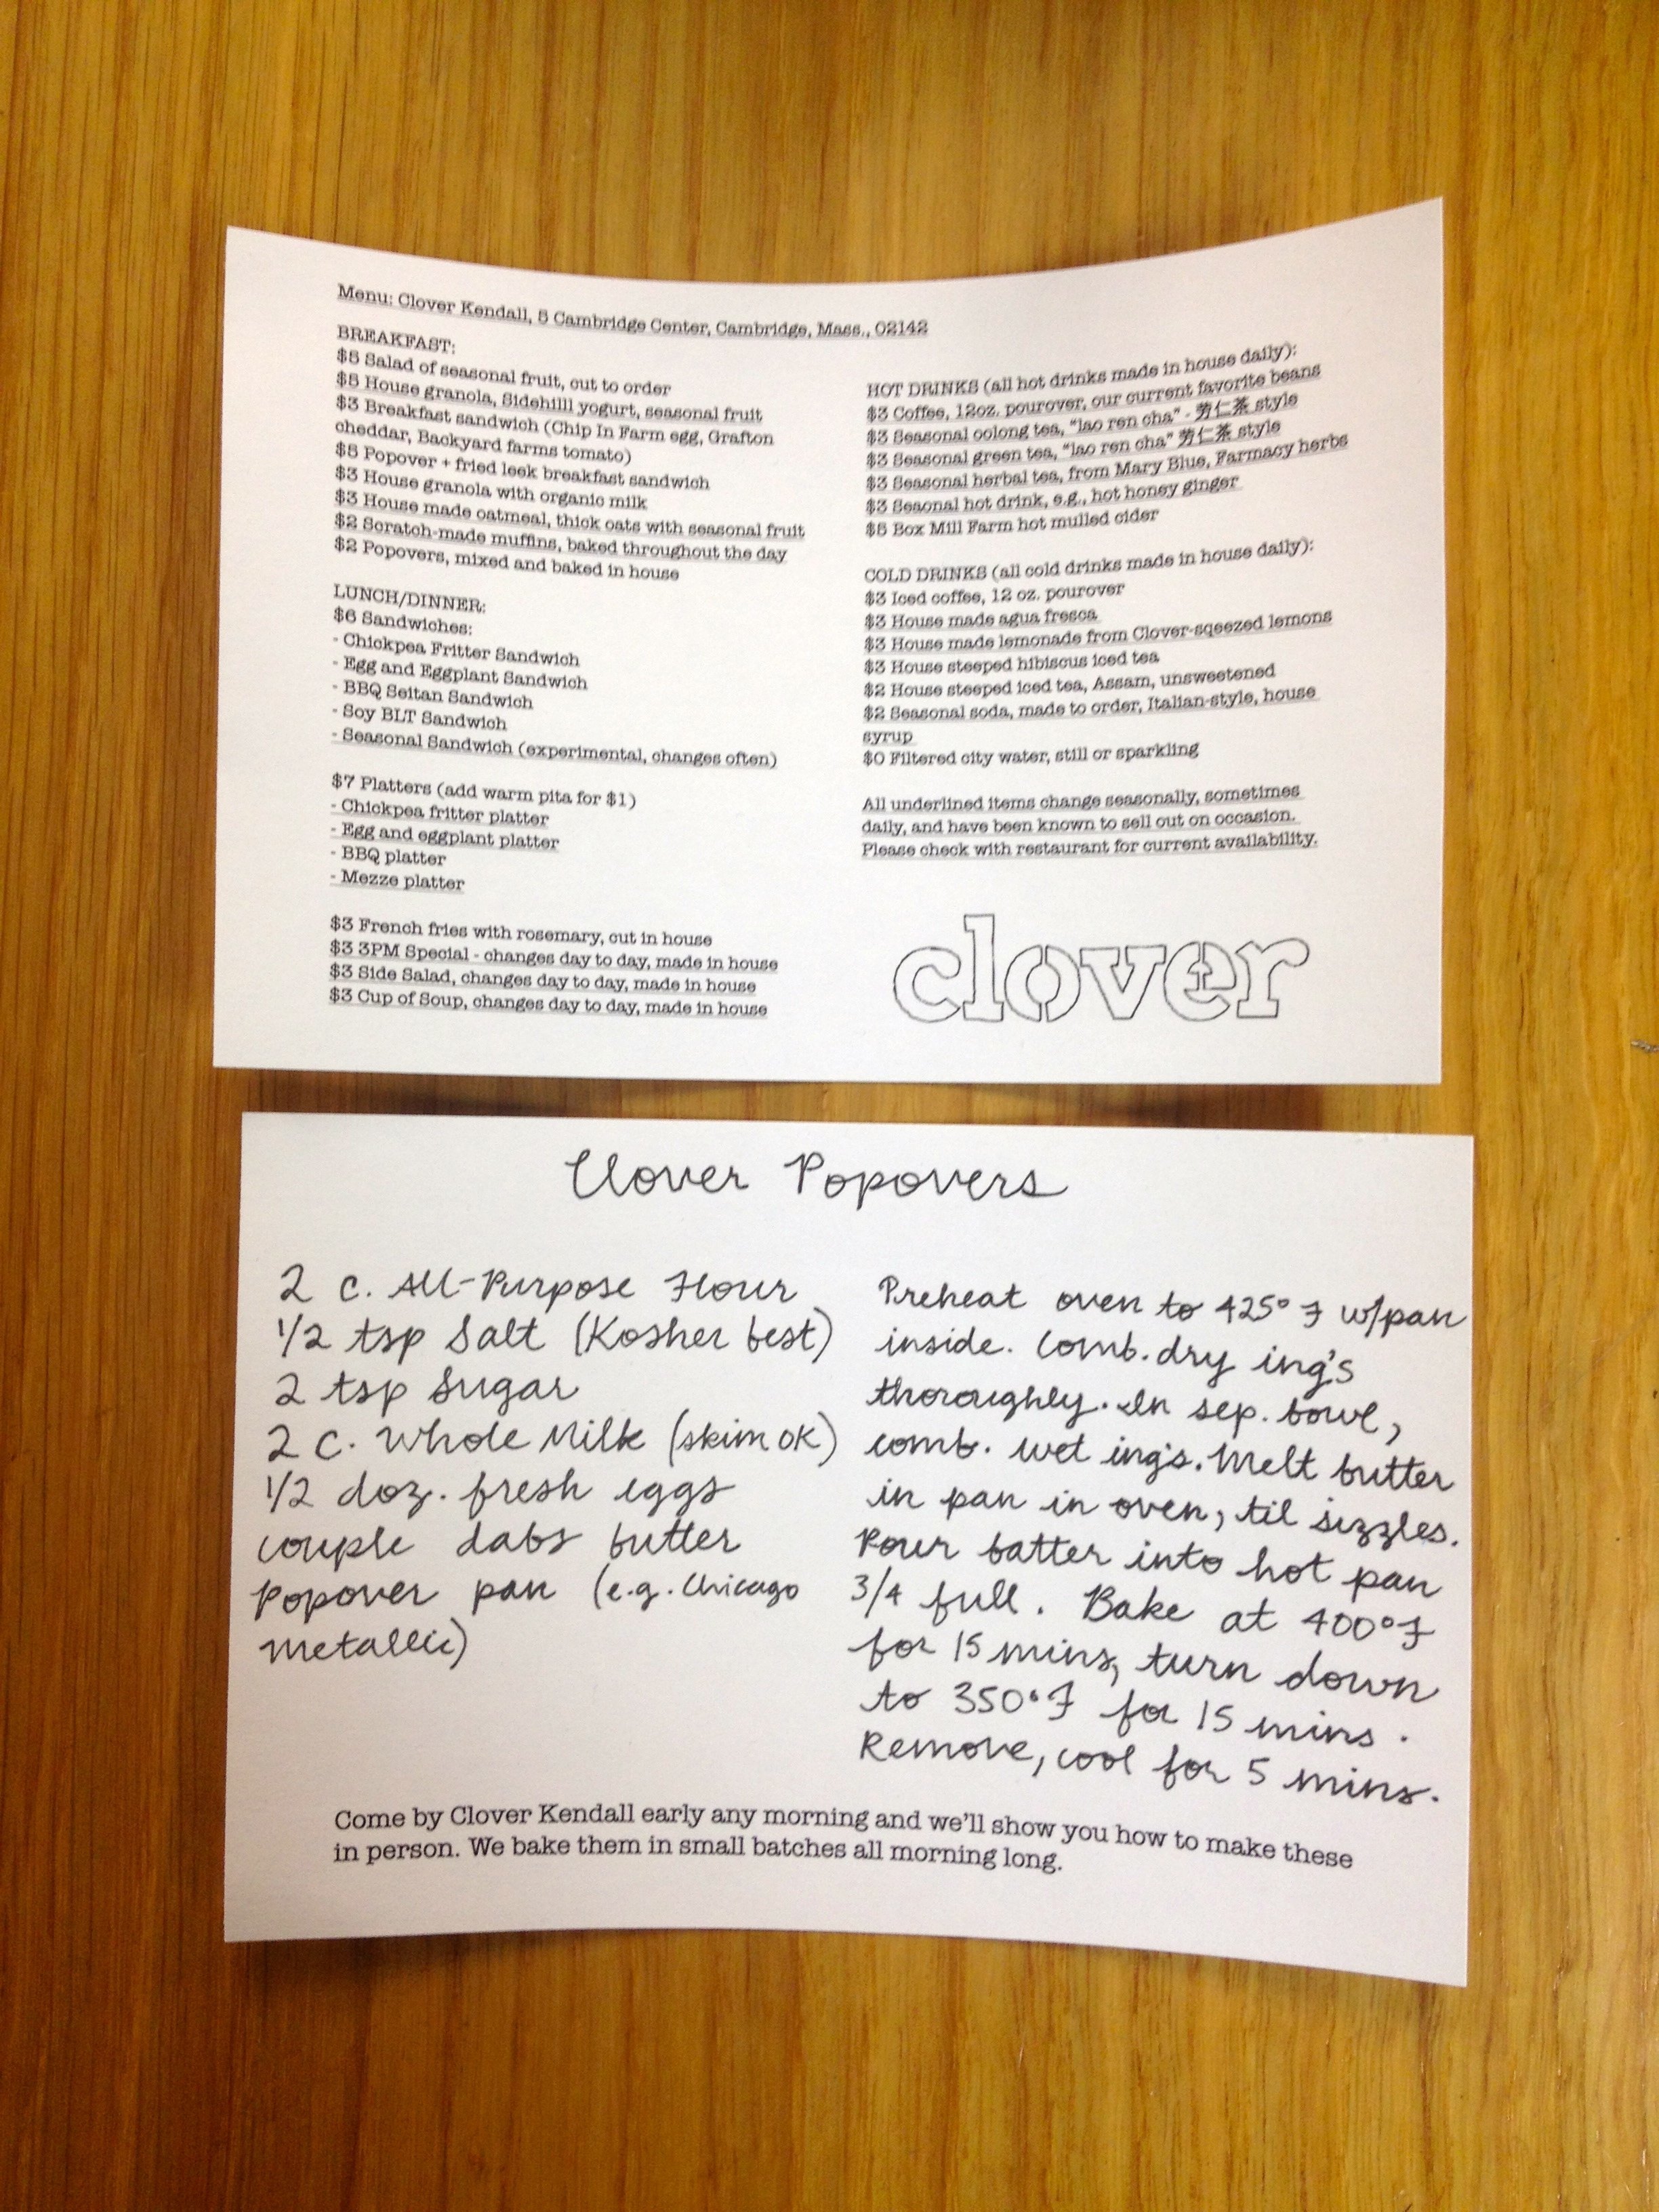 Menu: Clover Kendall, 5 Cambridge Center, Cambridge, Mass., 02142
BREAKFAST:
$5 Salad of seasonal fruit, cut to order
$5 House granola, Sidehilll yogurt, seasonal fruit
$3 Breakfast sandwich (Chip In Farm egg, Grafton
cheddar, Backyard farms tomato)
$5 Popover + fried leek breakfast sandwich
$3 House granola with organic milk
$3 House made oatmeal, thick oats with seasonal fruit
$2 Scratch-made muffins, baked throughout the day
$2 Popovers, mixed and baked in house
LUNCH/DINNER:
$6 Sandwiches:
- Chickpea Fritter Sandwich
- Egg and Eggplant Sandwich
- BBQ Seitan Sandwich
- Soy BLT Sandwich
- Seasonal Sandwich (experimental, changes often)
$7 Platters (add warm pita for $1)
- Chickpea fritter platter
- Egg and eggplant platter
- BBQ platter
- Mezze platter
$3 French fries with rosemary, cut in house
$3 3PM Special - changes day to day, made in house
$3 Side Salad, changes day to day, made in house
$3 Cup of Soup, changes day to day, made in house
HOT DRINKS (all hot drinks made in house daily):
$3 Coffee, 12oz. pourover, our current favorite beans
$3 Seasonal oolong tea, "lao ren cha" - 劳仁茶 style
$3 Seasonal green tea, "lao ren cha" 劳仁茶 style
$3 Seasonal herbal tea, from Mary Blue, Farmacy herbs
$3 Seaonal hot drink, e.g., hot honey ginger
$5 Box Mill Farm hot mulled cider
COLD DRINKS (all cold drinks made in house daily):
$3 Iced coffee, 12 oz. pourover
$3 House made agua fresca
$3 House made lemonade from Clover-sqeezed lemons
$3 House steeped hibiscus iced tea
$2 House steeped iced tea, Assam, unsweetened
$2 Seasonal soda, made to order, Italian-style, house
syrup
$0 Filtered city water, still or sparkling
All underlined items change seasonally, sometimes
daily, and have been known to sell out on occasion.
Please check with restaurant for current availability.
clover
Clover Popovers
2 c. All-Purpose Flour
1/2 tsp Salt (Kosher best)
2 tsp Sugar
2 c. Whole Milk (skim OK)
1/2 doz. fresh eggs
couple dabs butter
Popover pan (e.g. Chicago
metallic)
Preheat oven to 425° F w/pan
inside. Comb. dry ing's
thoroughly. In sep. bowl,
comb. wet ing's. Melt butter
in pan in oven, til sizzles.
Pour batter into hot pan
3/4 full. Bake at 400°F
for 15 mins, turn down
to 350°F for 15 mins.
Remove, cool for 5 mins.
Come by Clover Kendall early any morning and we'll show you how to make these
in person. We bake them in small batches all morning long.